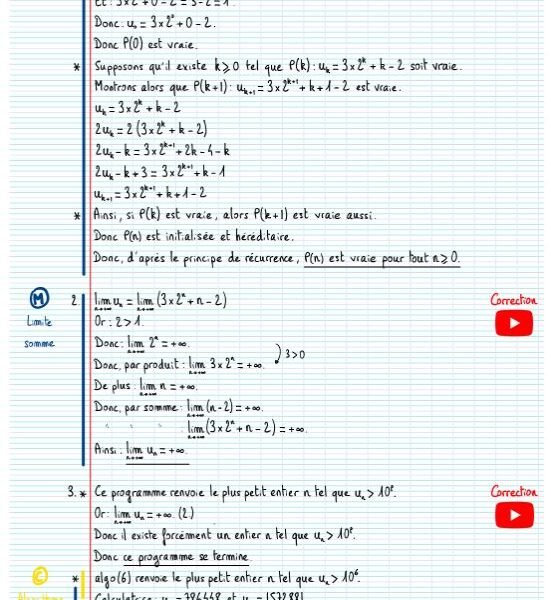 Et : 3x2° + 0 - 2 = 3 - 2 = 1.
Donc : u₀ = 3x2° + 0 - 2.
Donc P(0) est vraie.
* Supposons qu'il existe k ≥ 0 tel que P(k) : uₖ = 3x2ᵏ + k - 2 soit vraie.
Montrons alors que P(k+1) : uₖ₊₁ = 3x2ᵏ⁺¹ + k + 1 - 2 est vraie.
uₖ = 3x2ᵏ + k - 2
2uₖ = 2(3x2ᵏ + k - 2)
2uₖ - k = 3x2ᵏ⁺¹ + 2k - 4 - k
2uₖ - k + 3 = 3x2ᵏ⁺¹ + k - 1
uₖ₊₁ = 3x2ᵏ⁺¹ + k + 1 - 2
* Ainsi, si P(k) est vraie, alors P(k+1) est vraie aussi.
Donc P(n) est initialisée et héréditaire.
Donc, d'après le principe de récurrence, P(n) est vraie pour tout n ≥ 0.
M 2. lim uₙ = lim (3x2ⁿ + n - 2) Correction
Limite Or : 2 > 1.
somme Donc : lim 2ⁿ = +∞.
Donc, par produit : lim 3x2ⁿ = +∞. ) 3>0
De plus : lim n = +∞.
Donc, par somme : lim (n - 2) = +∞.
" " : lim (3x2ⁿ + n - 2) = +∞.
Ainsi : lim uₙ = +∞.
3. * Ce programme renvoie le plus petit entier n tel que uₙ > 10ᵖ. Correction
Or : lim uₙ = +∞. (2)
Donc il existe forcément un entier n tel que uₙ > 10ᵖ.
Donc ce programme se termine.
C * algo(6) renvoie le plus petit entier n tel que uₙ > 10⁶.